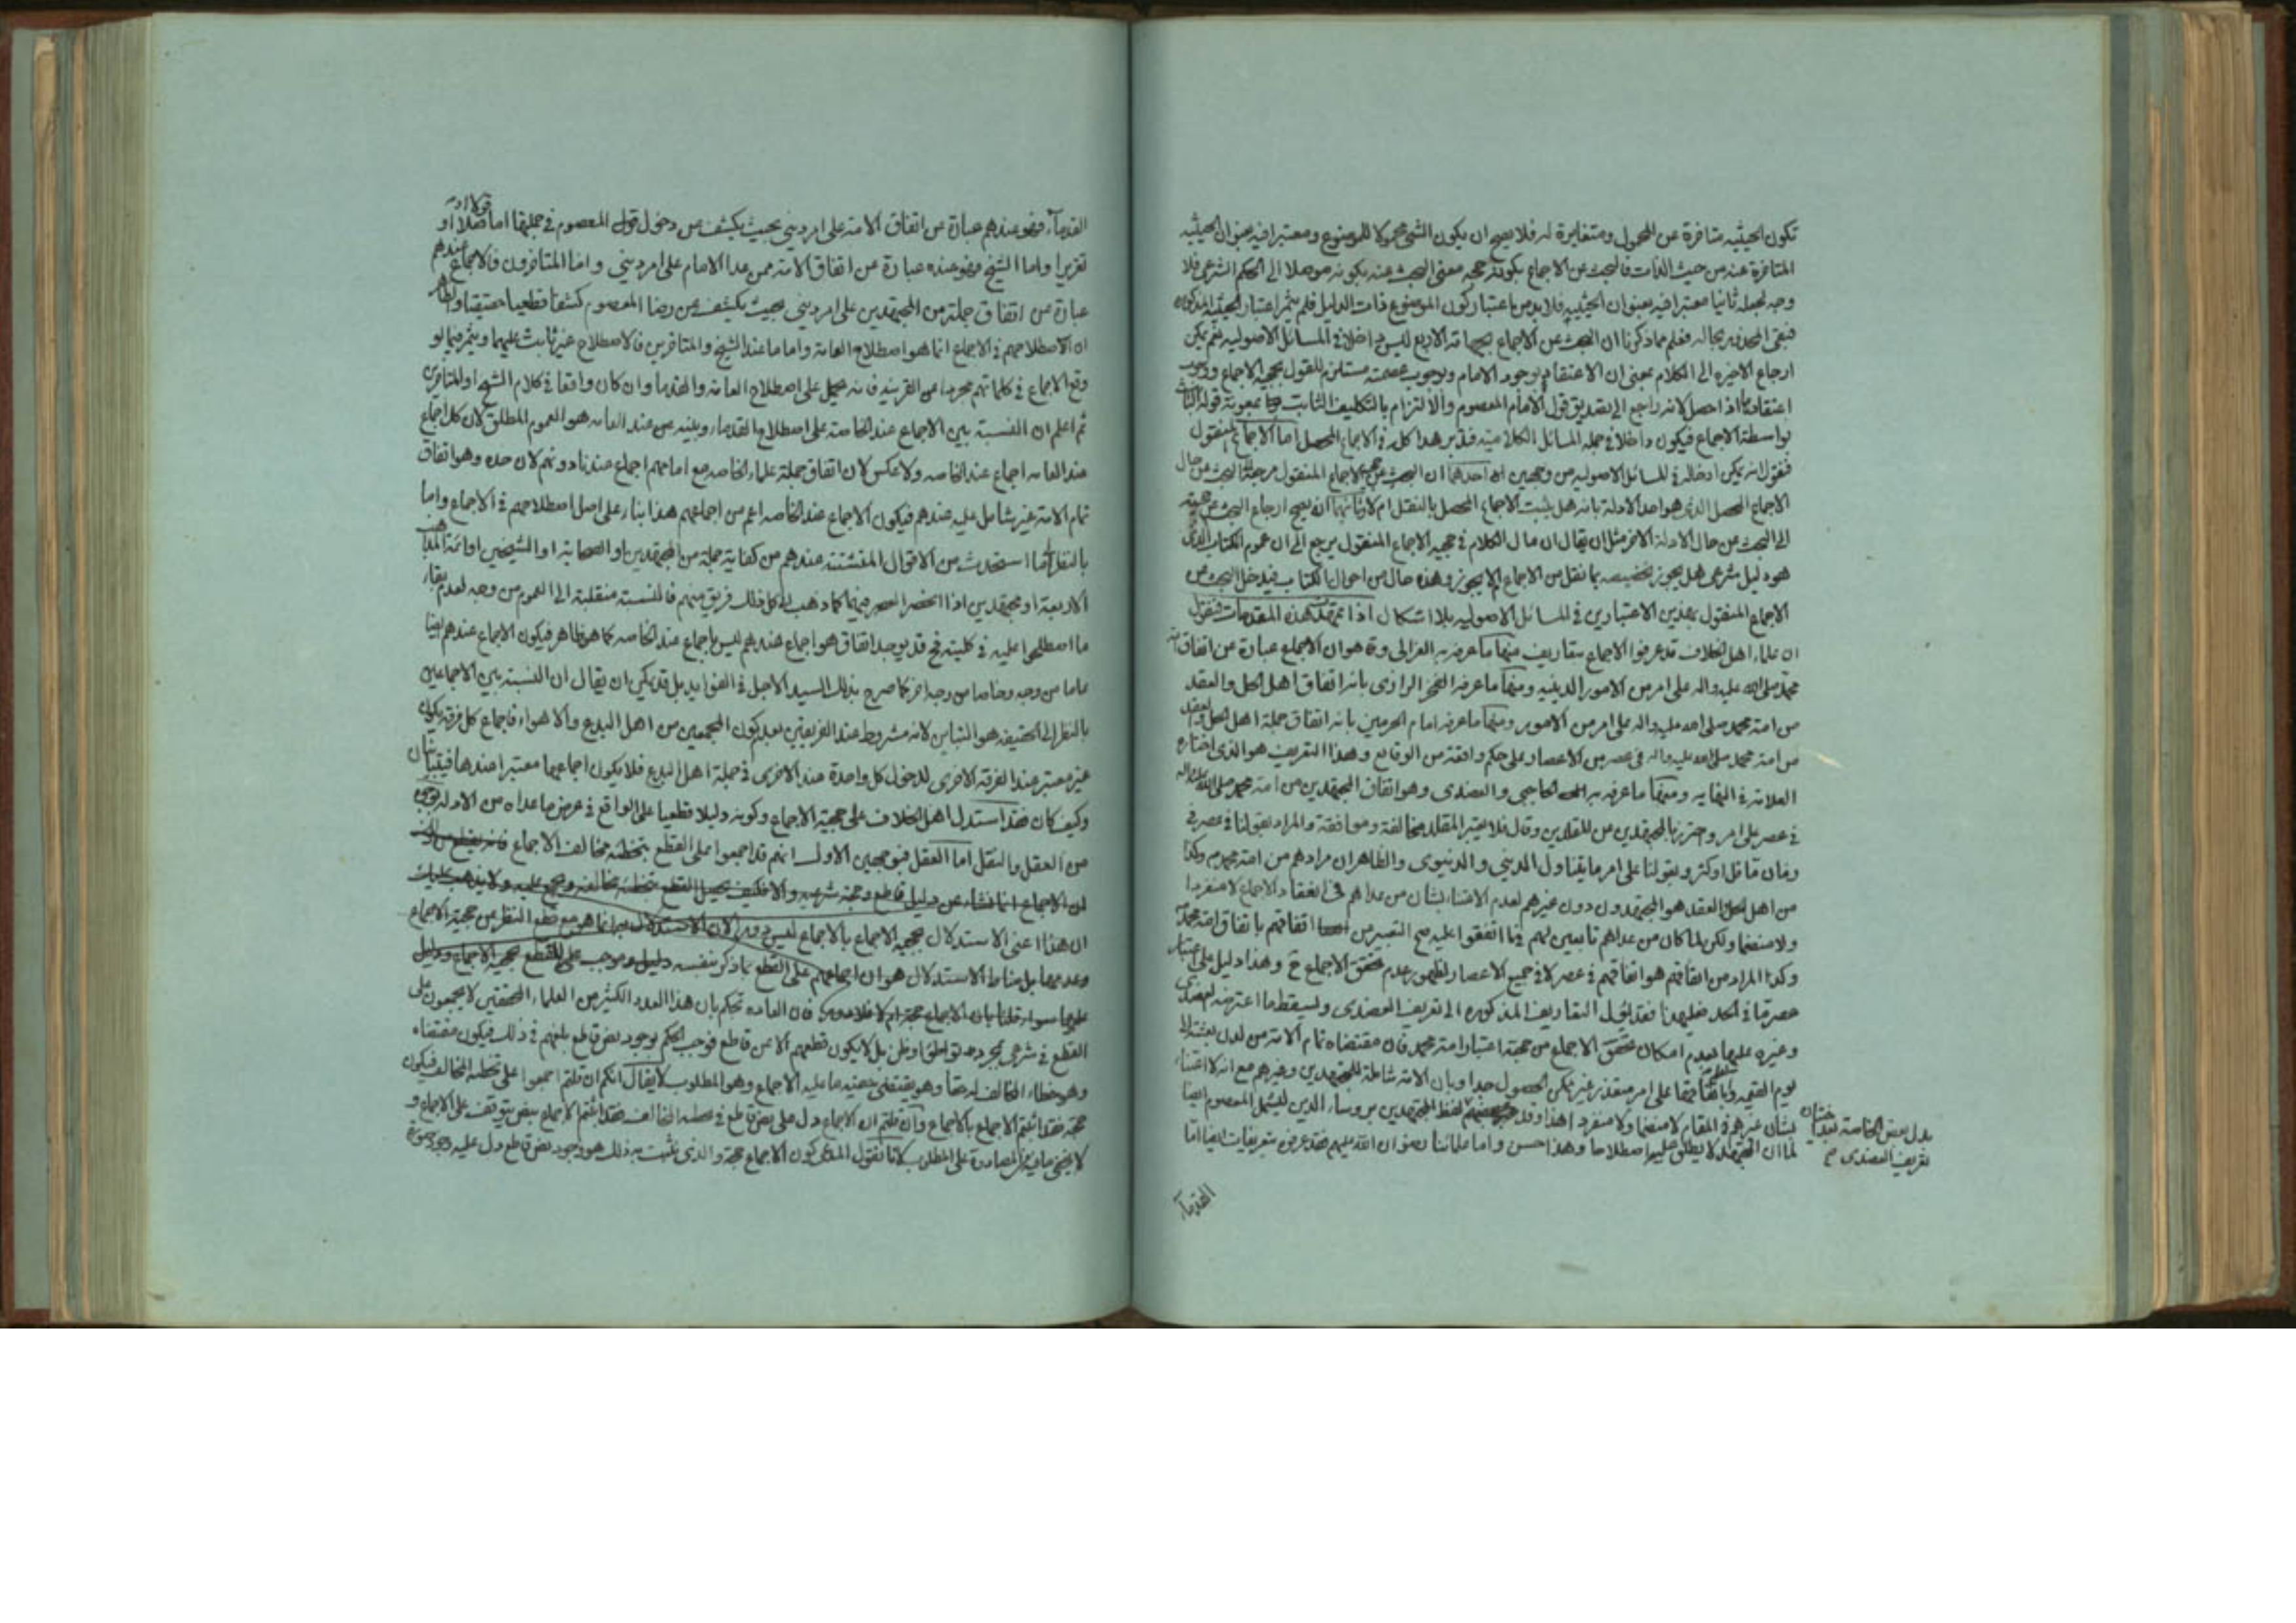 تكون الحيثيه متاخرة عن المحمول ومتغايرة له فلا يصح ان يكون الشئ محمولا للموضوع ومعتبرا فيه بعنوان الحيثيه
المتاخرة عنه من حيث الذات فالبحث عن الاجماع بكونه حجه معنى البحث عنه بكونه موصلا الى الحكم الشرعى فلا
وجه لجعله ثانيا معتبرا فيه بعنوان الحيثيه فلا بد من باعتبار كون الموضوع ذات الدليل فلم يثمر اعتبار الحيثية المذكوره
فبقى المحذور بحاله فعلم مما ذكرنا ان البحث عن الاجماع بجهاته الاربع ليس داخلا فى المسائل الاصوليه نعم يمكن
ارجاع الاخيره الى الكلام بمعنى ان الاعتقاد بوجود الامام وبوجوب عصمته مستلزم للقول بحجيه الاجماع ووجوب
اعتقاده اذا حصل لانه راجع الى تصديق قول الامام المعصوم والالتزام بالتكليف الثابت بمعونة قوله الثابت
بواسطة الاجماع فيكون داخلا فى جمله المسائل الكلاميه فتدبر هذا كله فى الاجماع المحصل اما الاجماع المنقول
فنقول انه يمكن ادخاله فى المسائل الاصوليه من وجهين احدهما ان البحث عن حجيه الاجماع المنقول مرجعه الى البحث عن حال
الاجماع المحصل الذى هو احد الادلة بانه هل يثبت الاجماع المحصل بالنقل ام لا وثانيهما انه يصح ارجاع البحث عن حجيته
الى البحث عن حال الادلة الاخر مثل ان يقال ان مال الكلام فى حجيه الاجماع المنقول يرجع الى ان عموم الكتاب الذى
هو دليل شرعى هل يجوز تخصيصه بما نقل من الاجماع ام لا يجوز وهذه حال من احوال الكتاب فيدخل البحث عن
الاجماع المنقول بهذين الاعتبارين فى المسائل الاصوليه بلا اشكال اذا تمهدت هذه المقدمات فنقول
ان علماء اهل الخلاف قد عرفوا الاجماع بتعاريف منها ما عرفه به الغزالى وة هو ان الاجماع عبارة عن اتفاق امة
محمد صلى الله عليه واله على امر من الامور الدينيه ومنها ما عرفه الفخر الرازى بانه اتفاق اهل الحل والعقد
من امة محمد صلى الله عليه واله على امر من الامور ومنها ما عرفه امام الحرمين بانه اتفاق جملة اهل الحل والعقد
من امة محمد صلى الله عليه واله فى عصر من الاعصار على حكم واقعة من الوقايع وهذا التعريف هو الذى اختاره
العلامة فى النهايه ومنها ما عرفه به الحاجبى والعضدى وهو اتفاق المجتهدين من امة محمد صلى الله عليه واله
فى عصر على امر واحترز بالمجتهدين عن المقلدين وقال فلا يعتبر المقلد مخالفة وموافقة والمراد بقولنا فى عصر فى
زمان ما قل او كثر وبقولنا على امر ما يتناول الدينى والدنيوى والظاهر ان مرادهم من امة محمد م وكذا
من اهل الحل والعقد هو المجتهدون دون غيرهم لعدم الاعتناء بشان من عداهم فى انعقاد الاجماع لا منفردا
ولا منضما ولكن لما كان من عداهم تابعين لهم فيما اتفقوا عليه صح التعبير من اتفاقهم باتفاق امة محمد
وكذا المراد من اتفاقهم هو اتفاقهم فى عصر لا فى جميع الاعصار لظهور عدم تحقق الاجماع ح وهذا دليل على اعتبار
عصر ما فى الحد فعليهذا فقد يؤل التعاريف المذكوره الى تعريف العضدى ويسقط ما اعترضه العضدى
وغيره عليها بعدم امكان تحقق الاجماع من جهة اعتبار امة محمد فان مقتضاه تمام الامة من لدن بعثته الى
يوم القيمه واتفاقها على امر متعذر غير ممكن الحصول جدا وبان الامة شاملة للمجتهدين وغيرهم مع انه لا اعتناء
بشان غيرهم فى المقام لا منضما ولا منفردا هذا وقد لفظ المجتهدين بروساء الدين ليشمل المعصوم ايضا
لما ان المجتهد لا يطلق عليه اصطلاحا وهذا حسن واما علمائنا رضوان الله عليهم فقد عرفوه بتعريفات ايضا اما
بدل بعض الخاصة بعد اختيار
تعريف العضدى ص
القدماء
القدماء فهو عندهم عبارة عن اتفاق الامة على امر دينى بحيث يكشف عن دخول قول المعصوم فى جملتها اما قولا او فعلا او
تقريرا واما الشيخ فهو عنده عبارة عن اتفاق الامة ممن عدا الامام على امر دينى واما المتاخرون فالاجماع عندهم
عبارة عن اتفاق جملة من المجتهدين على امر دينى بحيث يكشف عن رضا المعصوم كشفا قطعيا حقيقيا والظاهر
ان الاصطلاحهم فى الاجماع انما هو اصطلاح العامة واما ما عند الشيخ والمتاخرين فالاصطلاح غير ثابت عليهما ويثمر فيما لو
وقع الاجماع فى كلماتهم مجردا عن القرينه فانه يحمل على اصطلاح العامة والقدما وان كان واقعا فى كلام الشيخ او المتاخرين
ثم اعلم ان النسبة بين الاجماع عند الخاصة على اصطلاح القدماء وبينه عن عند العامه هو العموم المطلق لان كل اجماع
عند العامه اجماع عند الخاصه ولا عكس لان اتفاق جملة علماء الخاصه مع امامهم اجماع عندنا دونهم لان حده وهو اتفاق
تمام الامة غير شامل عليه عندهم فيكون الاجماع عند الخاصه اعم من اجماعهم هذا بناء على اصل اصطلاحهم فى الاجماع واما
بالنظر الى ما استحدث من الاقوال المتشتتة عندهم من كفاية جملة من المجتهدين او الصحابة او الشيخين او ائمة المذاهب
الاربعة او مجتهدين اذا انحصر العصر فيهما كما ذهب الى كل ذلك فريق منهم فالنسبة منقلبة الى العموم من وجه لعدم بقاء
ما اصطلحوا عليه فى كليته فح قد يوجد اتفاق هو اجماع عندهم ليس باجماع عند الخاصه كما هو ظاهر فيكون الاجماع عندهم ايضا
عاما من وجه وخاصا من وجه اخر كما صرح بذلك السيد الاجل فى الفوايد بل قد يمكن ان يقال ان النسبة بين الاجماعين
بالنظر الى الحقيقه هو التباين لانه مشروط عند الفريقين بعدم كون المجمعين من اهل البدع والاهواء فاجماع كل فرقه يكون
غير معتبر عند الفرقه الاخرى لدخول كل واحدة عند الاخرى فى جملة اهل البدع فلا يكون اجماعهما معتبرا عندها فيتباينان
وكيف كان فقد استدل اهل الخلاف على حجية الاجماع وكونه دليلا قطعيا على الواقع فى عرض ما عداه من الادلة بوجوه
من العقل والنقل اما العقل فبوجهين الاول انهم قد اجمعوا على القطع بتخطئه مخالف الاجماع
ان الاجماع انما نشاء عن دليل قاطع وحجة شرعيه والا فكيف يحصل القطع بتخطئه مخالفه
ان هذا اعنى الاستدلال بحجيه الاجماع بالاجماع ليس دور لان الاستدلال به انما هو مع قطع النظر عن حجية الاجماع
وعدمها بل مناط الاستدلال هو ان اجماعهم على القطع بما ذكر بنفسه دليل وموجب على القطع بحجيه الاجماع
سواء قلنا بان الاجماع حجة ام لا فلا دور فان العاده تحكم بان هذا العدد الكثير من العلماء المحققين لا يجمعون على
القطع فى شرعى بمجرد تواطؤ او ظن بل لا يكون قطعهم الا عن قاطع فوجب الحكم بوجود نص قاطع بلغهم فى ذلك فيكون مقتضاه
وهو خطاء المخالف له حقا وهو يقتضى حقية ما عليه الاجماع وهو المطلوب لا يقال انكم ان قلتم اجمعوا على تخطئه المخالف فيكون
حجة فقد اثبتم الاجماع بالاجماع وان قلتم ان الاجماع دل على نص قاطع فى تخطئه المخالف فقد اثبتم الاجماع بنص يتوقف على الاجماع و
لا يخفى ما فيه من المصادرة على المطلوب لانا نقول المدعى كون الاجماع حجة والذى يثبت به ذلك هو وجود نص قاطع دل عليه وجود صورة